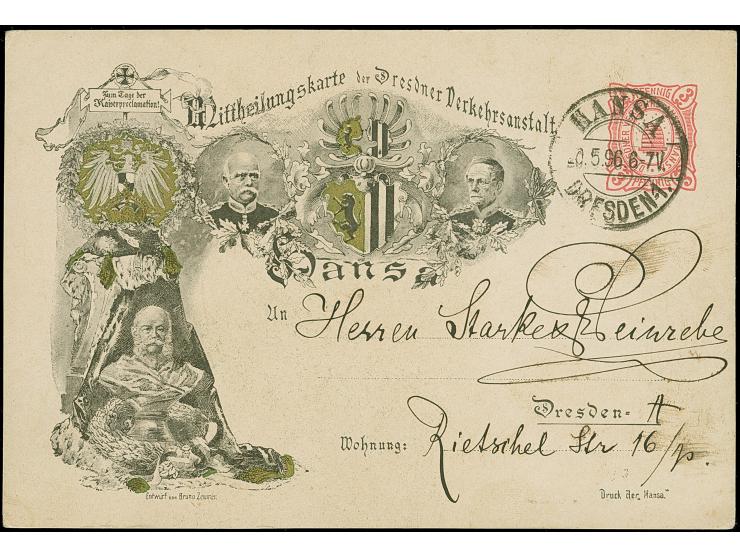 Zum Tage der
Kaiserproclamation!
Mittheilungskarte der Dresdner Verkehrsanstalt
Hansa
3 PFENNIG 3
HANSA
20.5.96.6-7V.
DRESDEN-A.
An Herren Starke &
Dresden- A
Wohnung: Rietschel Str 16/p.
Entwurf von Bruno
Druck der „Hansa."